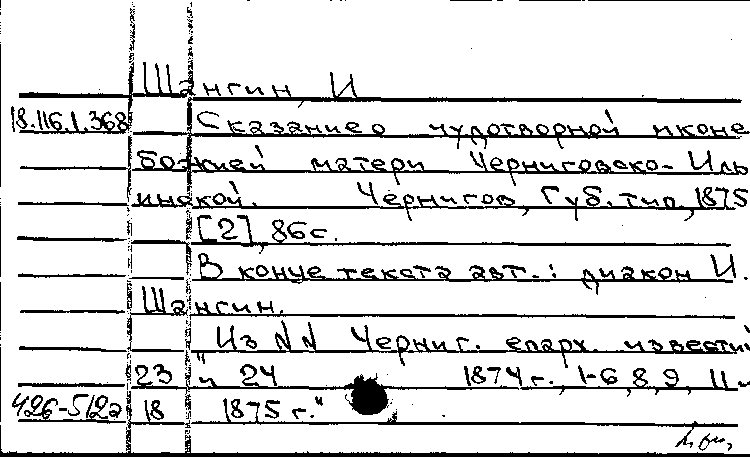 Шангин, И
18.116.1.368 Сказание о чудотворной иконе
божией матери Черниговско-Иль
инской. Чернигов, Губ. тип, 1875
[2], 86 с.
В конце текста авт.: диакон И.
Шангин.
"Из NN Черниг. епарх. известий
23 и 24 1874 г., 1-6, 8, 9, 11-
426-5/22 18 1875 г."